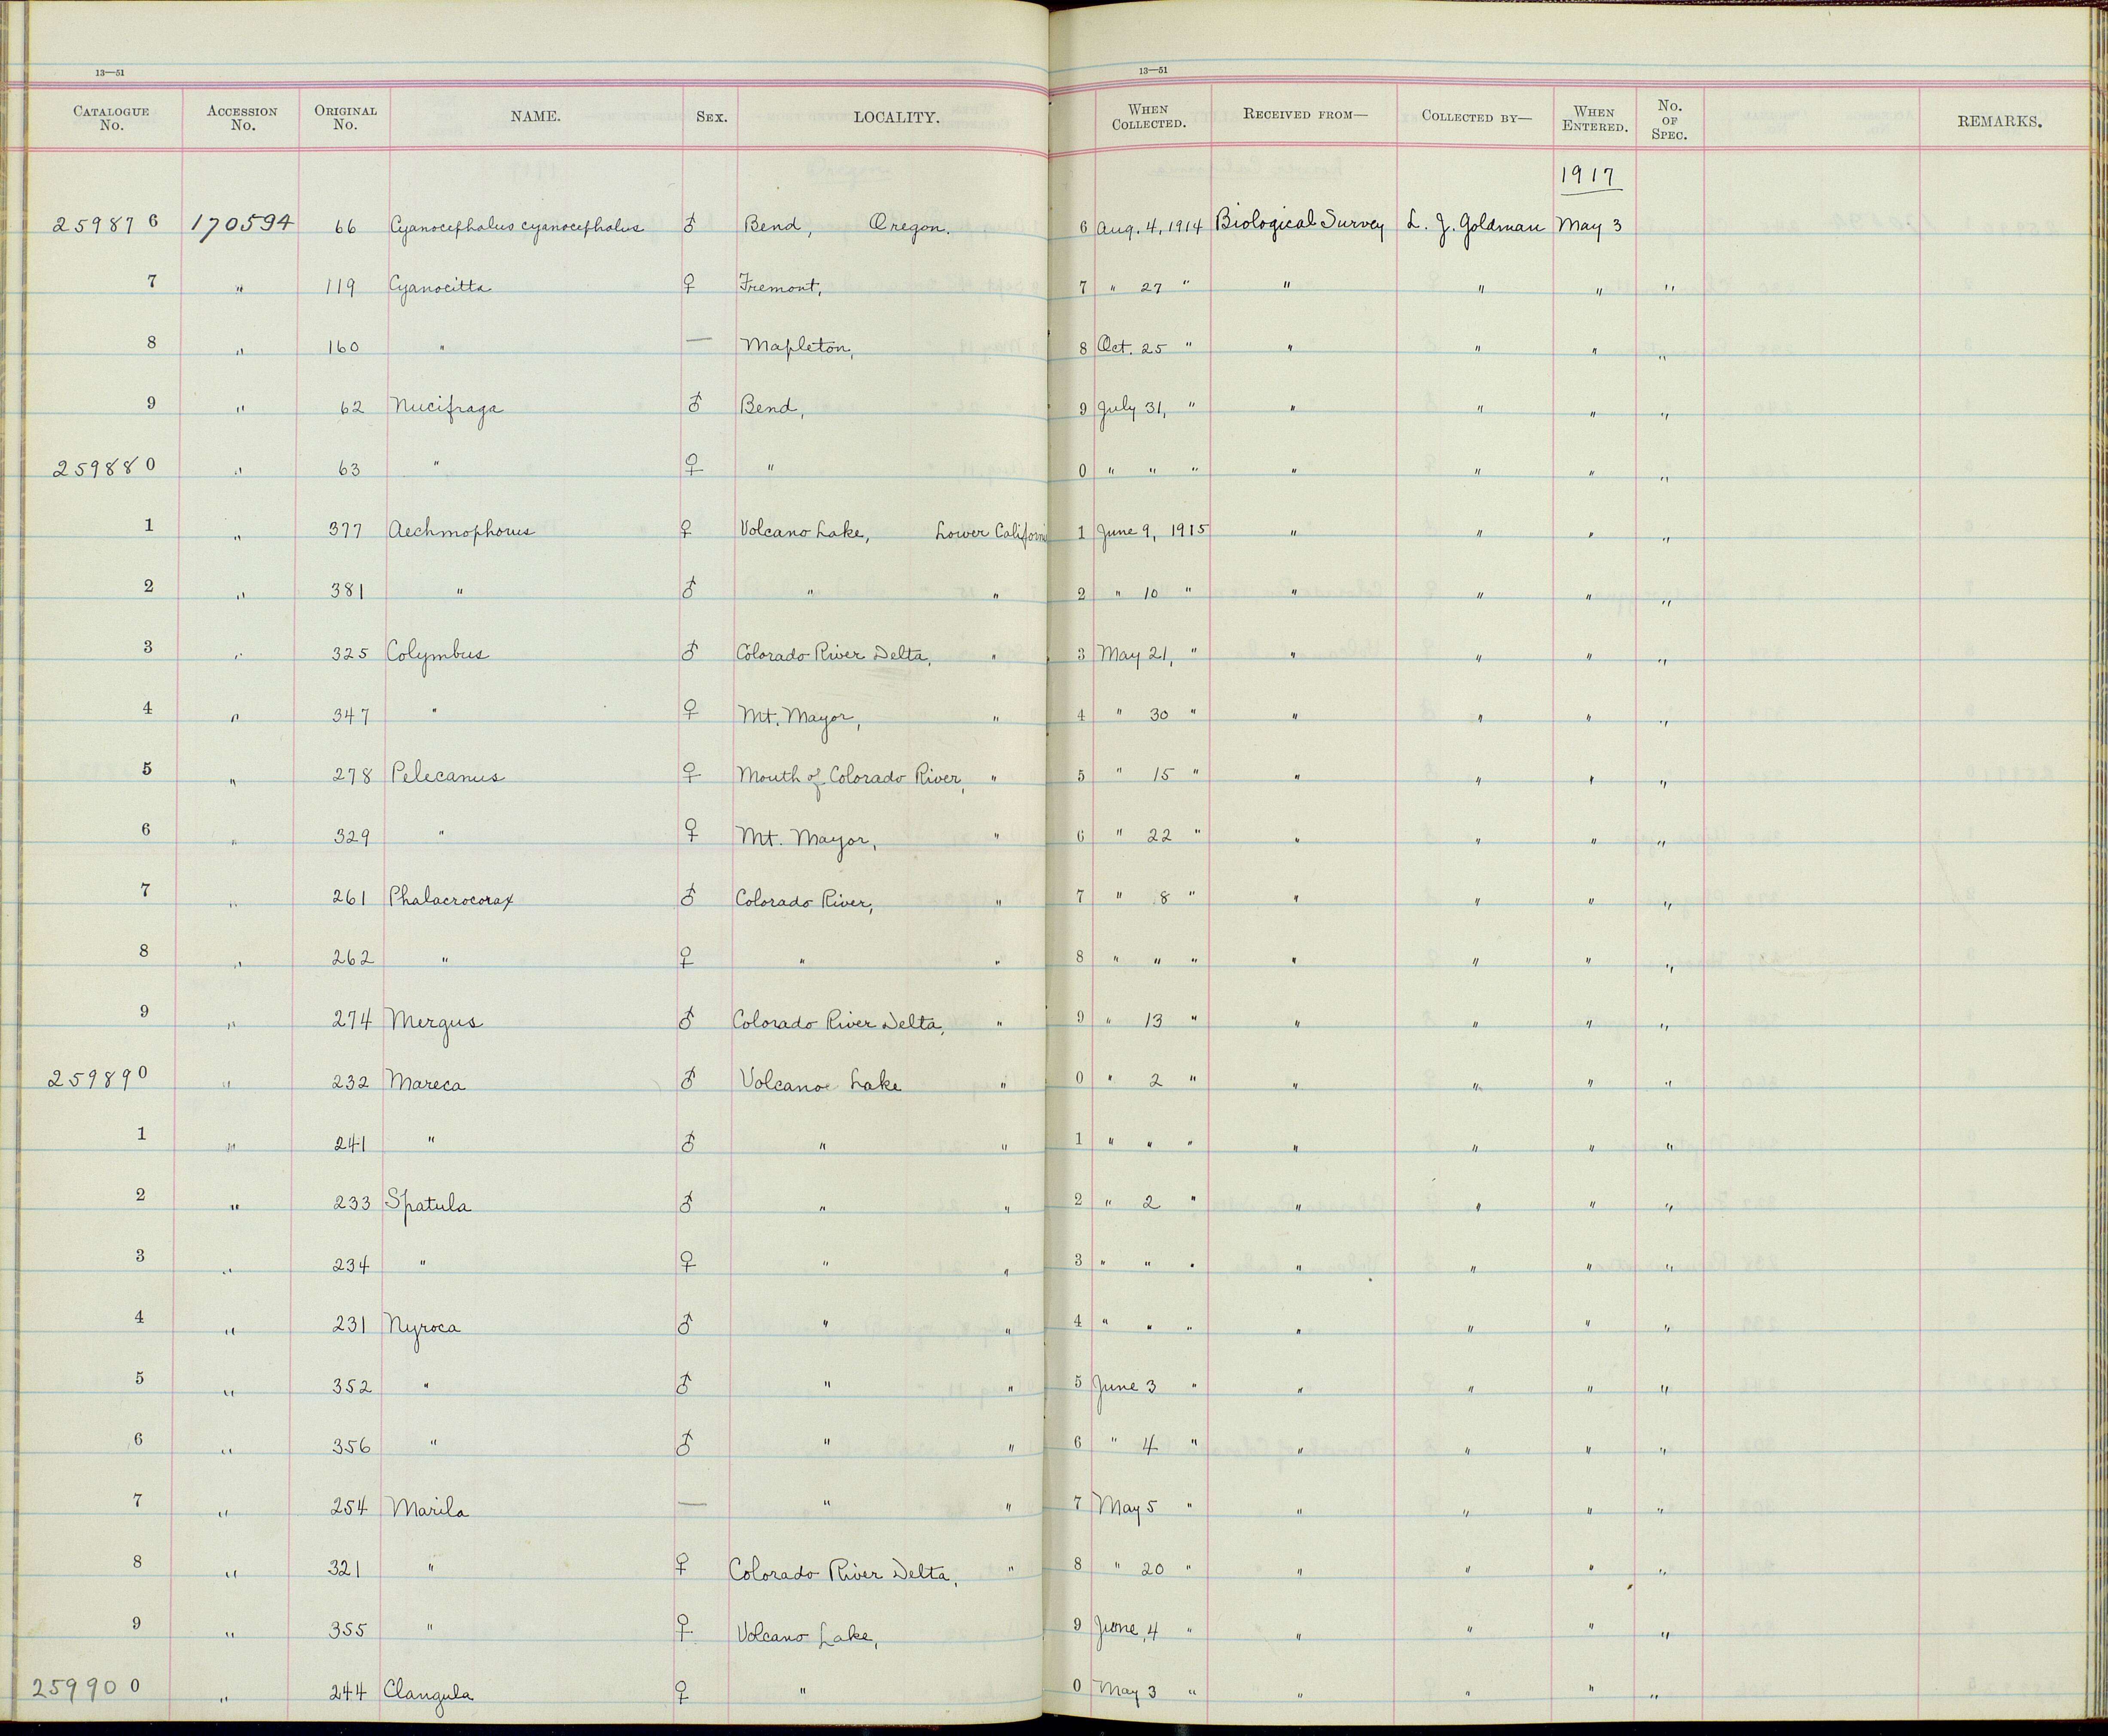 13—51 13—51
CATALOGUE No. ACCESSION No. ORIGINAL No. NAME. SEX. LOCALITY. WHEN COLLECTED. RECEIVED FROM— COLLECTED BY— WHEN ENTERED. No. OF SPEC. REMARKS.
1917
259876 170594 66 Cyanocephalus cyanocephalus ♂ Bend, Oregon. 6 Aug. 4, 1914 Biological Survey L. J. Goldman May 3
7 " 119 Cyanocitta ♀ Fremont, 7 " 27 " " " " "
8 " 160 " — Mapleton, 8 Oct. 25 " " " " "
9 " 62 Nucifraga ♂ Bend, 9 July 31, " " " " "
259880 " 63 " ♀ " 0 " " " " " " "
1 " 377 Aechmophorus ♀ Volcano Lake, Lower Californi 1 June 9, 1915 " " " "
2 " 381 " ♂ " " 2 " 10 " " " " "
3 " 325 Colymbus ♂ Colorado River Delta, " 3 May 21, " " " " "
4 " 347 " ♀ Mt. Mayor, " 4 " 30 " " " " "
5 " 278 Pelecanus ♀ Mouth of Colorado River, " 5 " 15 " " " " "
6 " 329 " ♀ Mt. Mayor, " 6 " 22 " " " " "
7 " 261 Phalacrocorax ♂ Colorado River, " 7 " 8 " " " " "
8 " 262 " ♀ " " 8 " " " " " " "
9 " 274 Mergus ♂ Colorado River Delta, " 9 " 13 " " " " "
259890 " 232 Mareca ♂ Volcanoe Lake " 0 " 2 " " " " "
1 " 241 " ♂ " " 1 " " " " " " "
2 " 233 Spatula ♂ " " 2 " 2 " " " " "
3 " 234 " ♀ " " 3 " " " " " " "
4 " 231 Nyroca ♂ " " 4 " " " " " " "
5 " 352 " ♂ " " 5 June 3 " " " " "
6 " 356 " ♂ " " 6 " 4 " " " " "
7 " 254 Marila — " " 7 May 5 " " " " "
8 " 321 " ♀ Colorado River Delta, " 8 " 20 " " " " "
9 " 355 " ♀ Volcano Lake, 9 June, 4 " " " " "
259900 " 244 Clangula ♀ " 0 May 3 " " " " "